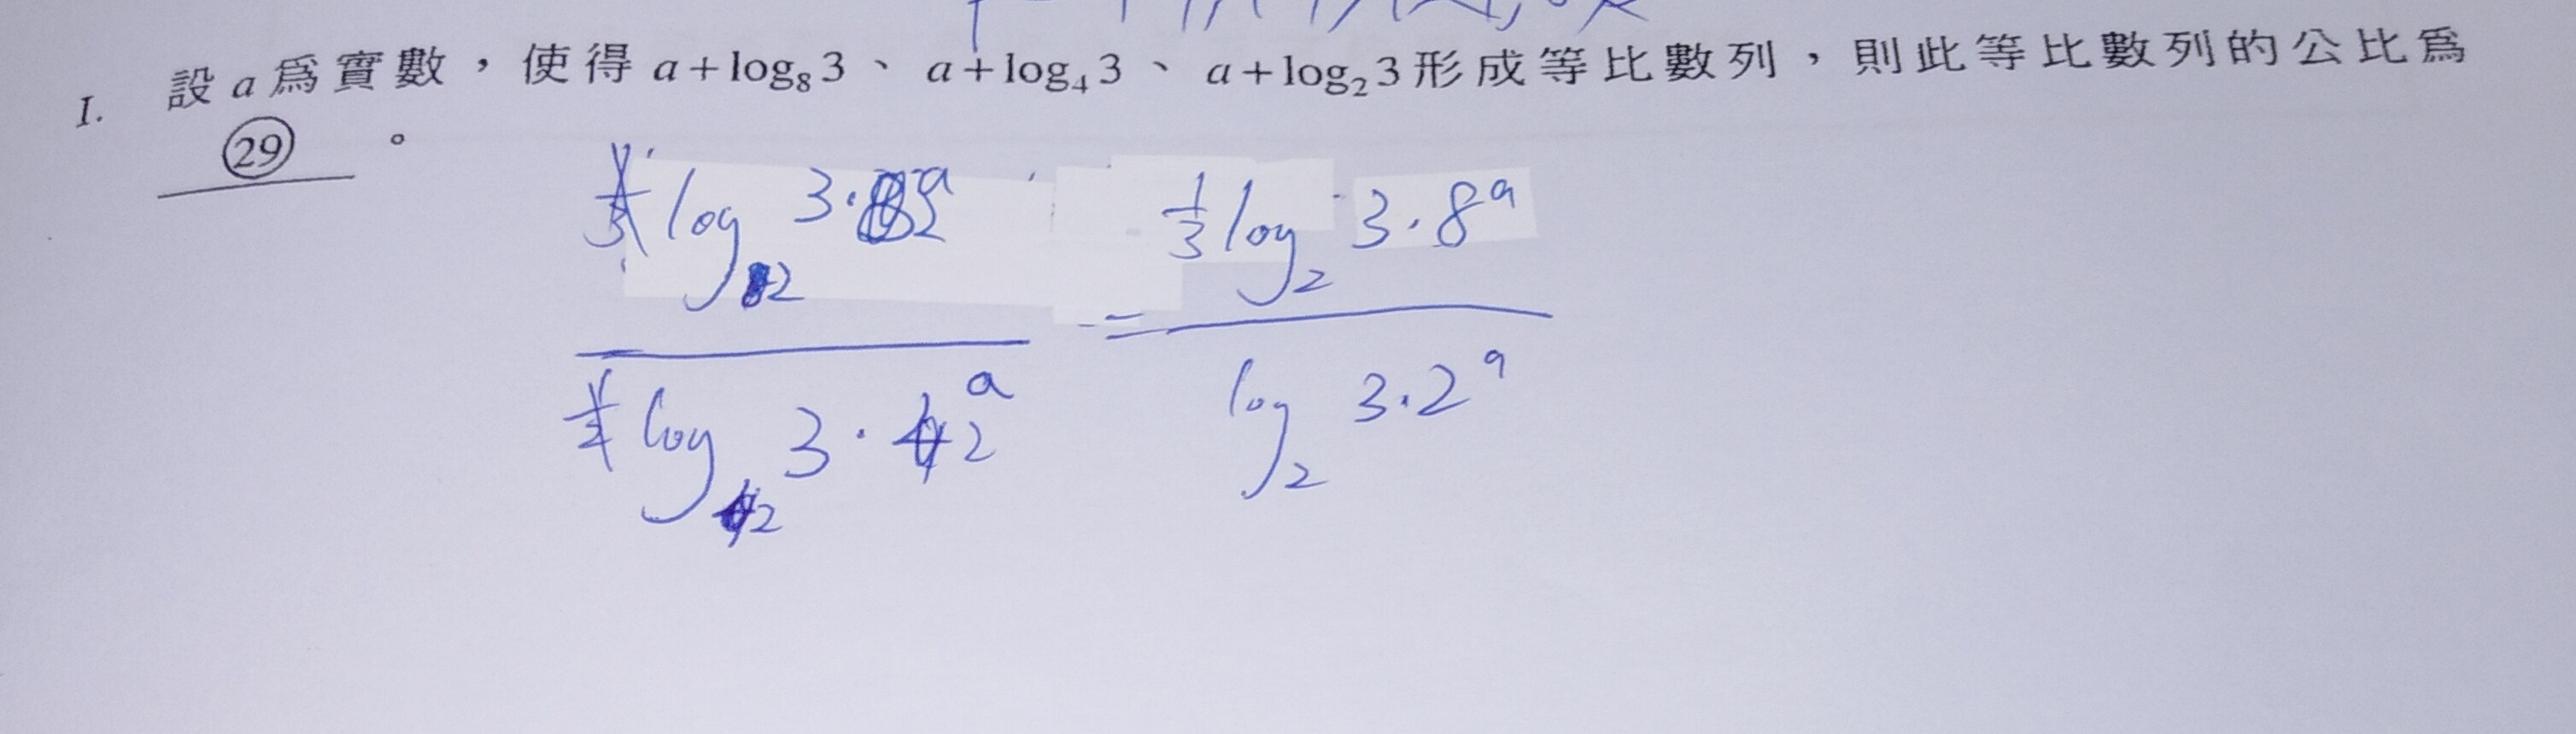 I. 設 a 爲實數，使得 a+log₈3、a+log₄3、a+log₂3 形成等比數列，則此等比數列的公比爲
㉙。
log₂ 3·2ᵃ
= 1/3 log₂ 3·8ᵃ
log₂ 3·2ᵃ
log₂ 3·2ᵃ